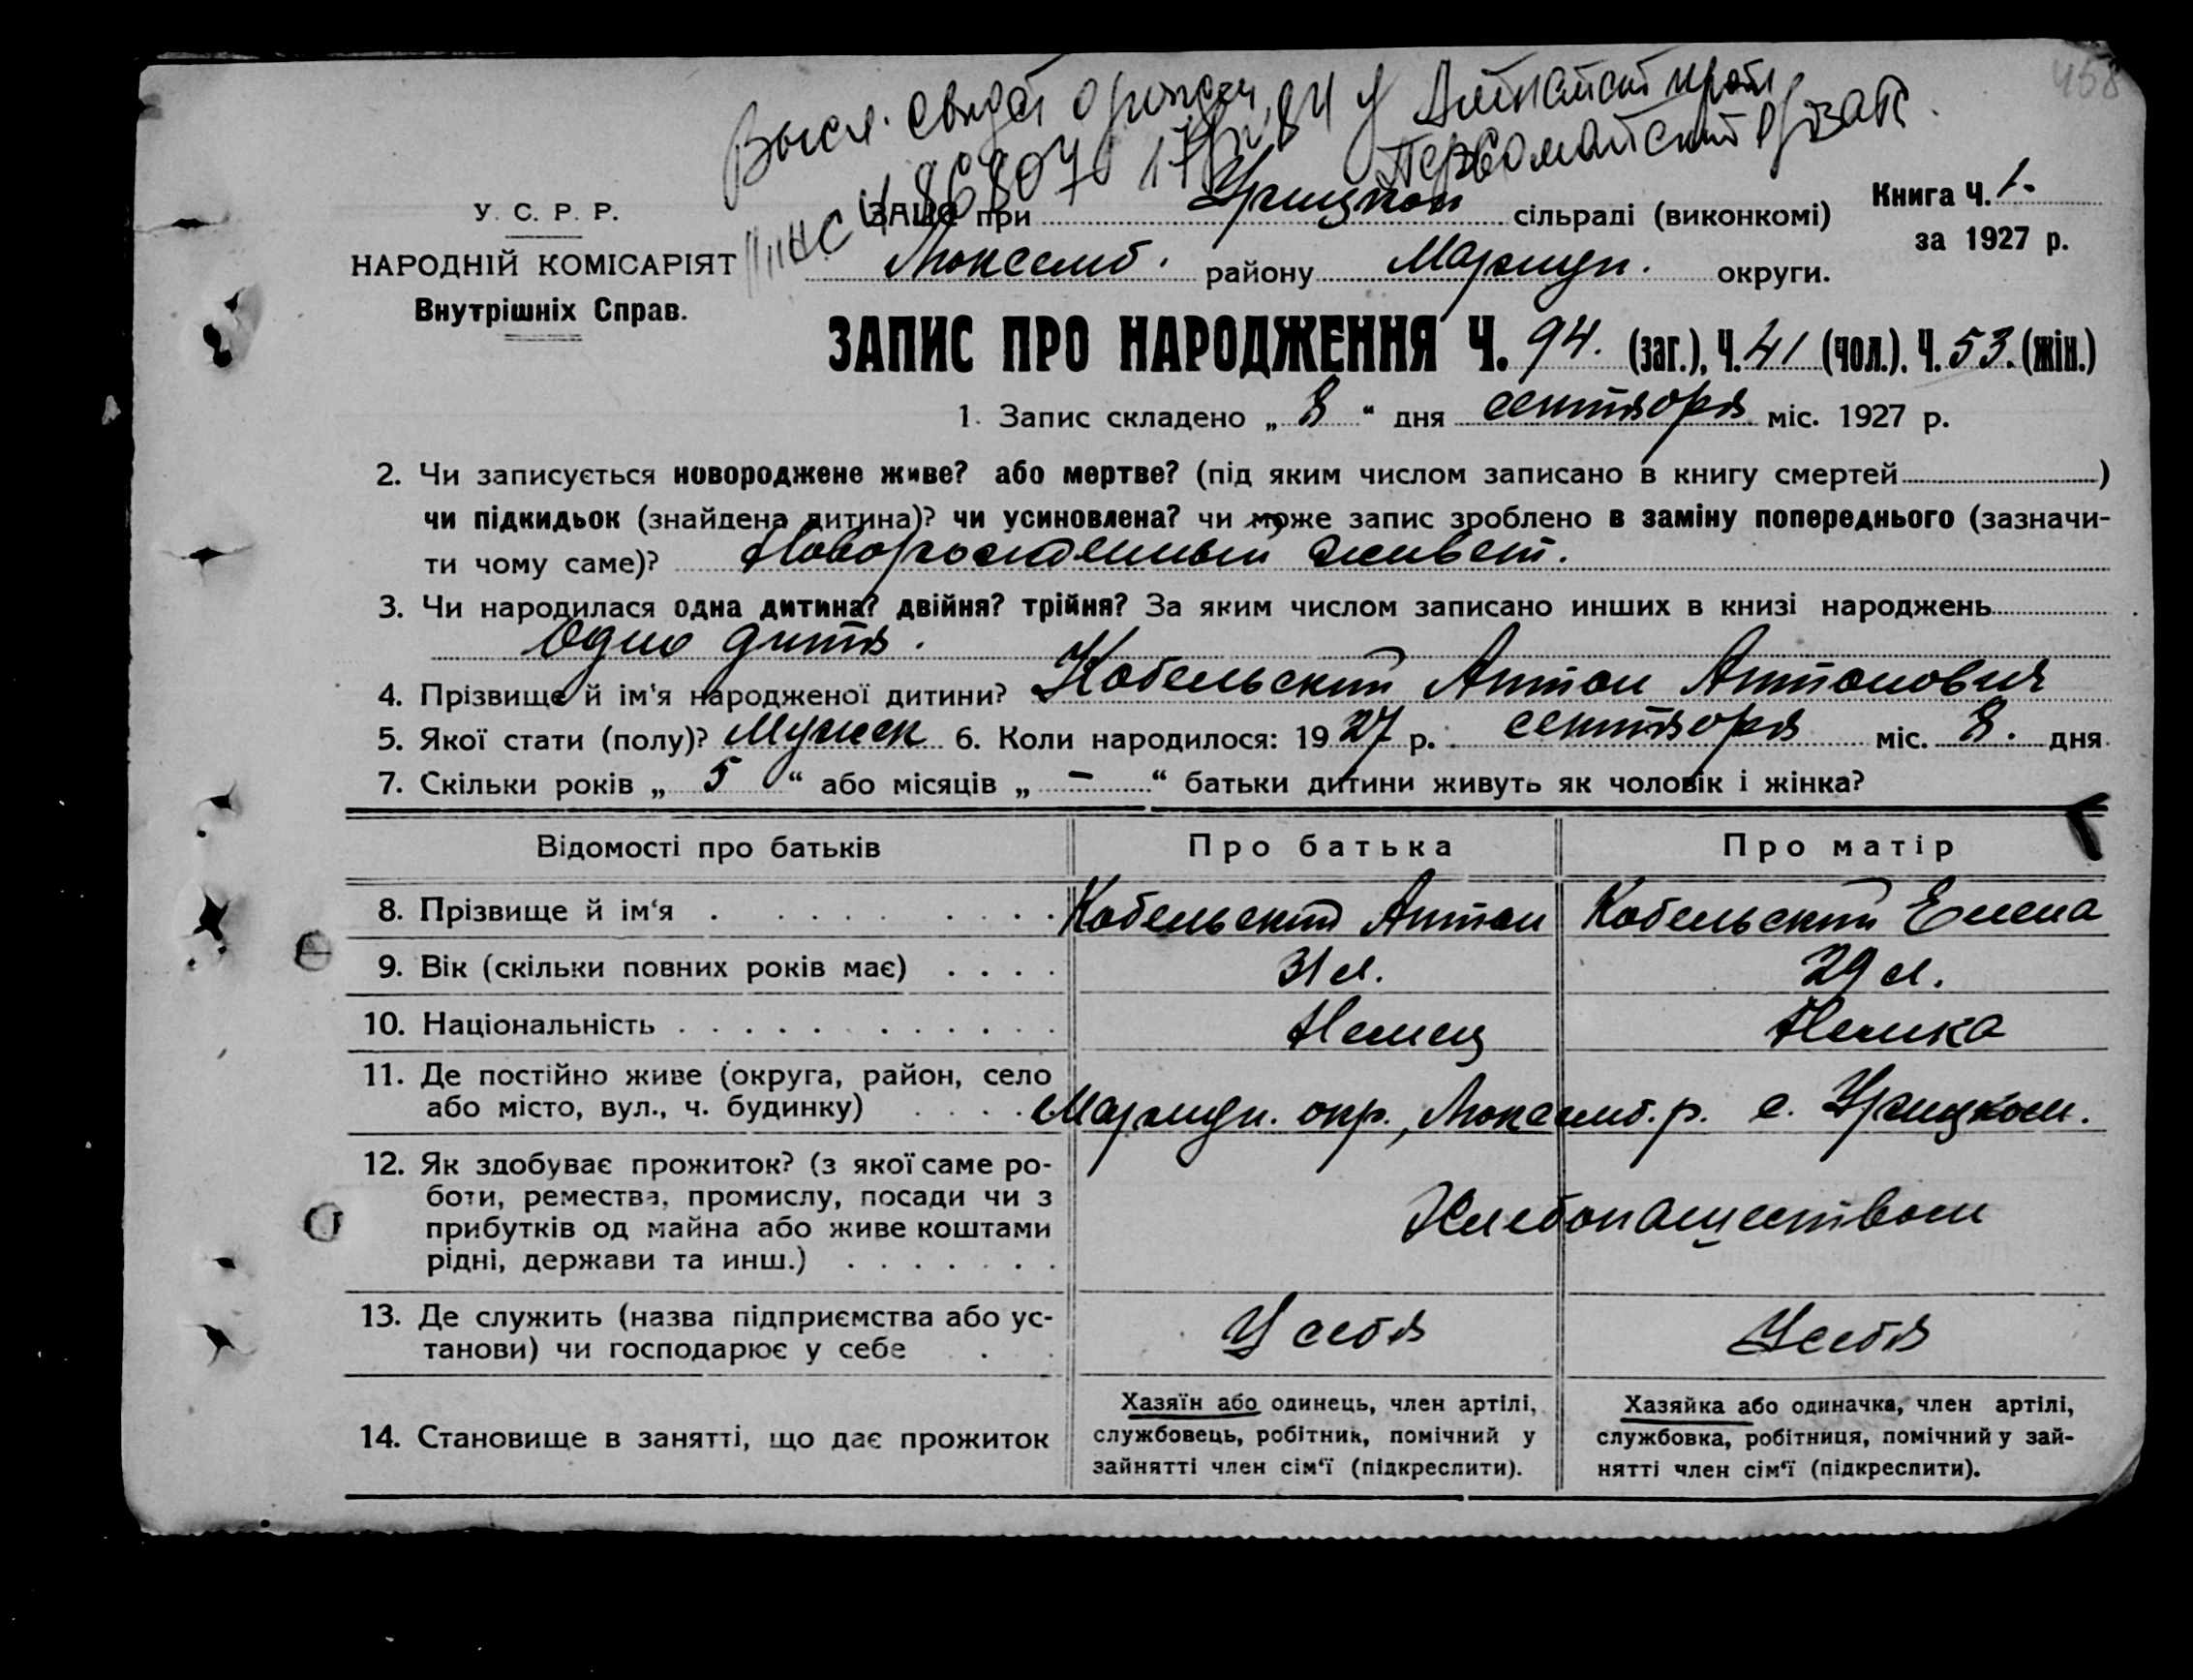 458
Высл. свидет о рожден
Алтайский край
Первомайский р/загс
У. С. Р. Р.
НАРОДНІЙ КОМІСАРІЯТ
Внутрішніх Справ.
ЗАЦС при Урицком сільраді (виконкомі)
Люксемб. району Мариуп. округи.
Книга Ч. 1.
за 1927 р.
ЗАПИС ПРО НАРОДЖЕННЯ Ч. 94. (заг.), Ч. 41 (чол.). Ч. 53. (жін.)
1. Запис складено „ 8 “ дня сентября міс. 1927 р.
2. Чи записується новороджене живе? або мертве? (під яким числом записано в книгу смертей )
чи підкидьок (знайдена дитина)? чи усиновлена? чи може запис зроблено в заміну попереднього (зазначи-
ти чому саме)? Новорожденный живет.
3. Чи народилася одна дитина? двійня? трійня? За яким числом записано инших в книзі народжень
Одно дитя.
4. Прізвище й ім'я народженої дитини? Кобельский Антон Антонович
5. Якої стати (полу)? Мужск 6. Коли народилося: 1927 р. сентября міс. 8. дня
7. Скільки років „ 5 “ або місяців „ – “ батьки дитини живуть як чоловік і жінка?
Відомості про батьків Про батька Про матір
8. Прізвище й ім'я Кобельский Антон Кобельский Елена
9. Вік (скільки повних років має) 31 л. 29 л.
10. Національність Немец Немка
11. Де постійно живе (округа, район, село
або місто, вул., ч. будинку) Мариуп. окр., Люксемб. р. с. Урицком.
12. Як здобуває прожиток? (з якої саме ро-
боти, ремества, промислу, посади чи з
прибутків од майна або живе коштами
рідні, держави та инш.)
Хлебопашеством
13. Де служить (назва підприємства або ус-
танови) чи господарює у себе
У себя У себя
14. Становище в занятті, що дає прожиток
Хазяїн або одинець, член артілі,
службовець, робітник, помічний у
зайнятті член сім'ї (підкреслити).
Хазяйка або одиначка, член артілі,
службовка, робітниця, помічний у зай-
нятті член сім'ї (підкреслити).